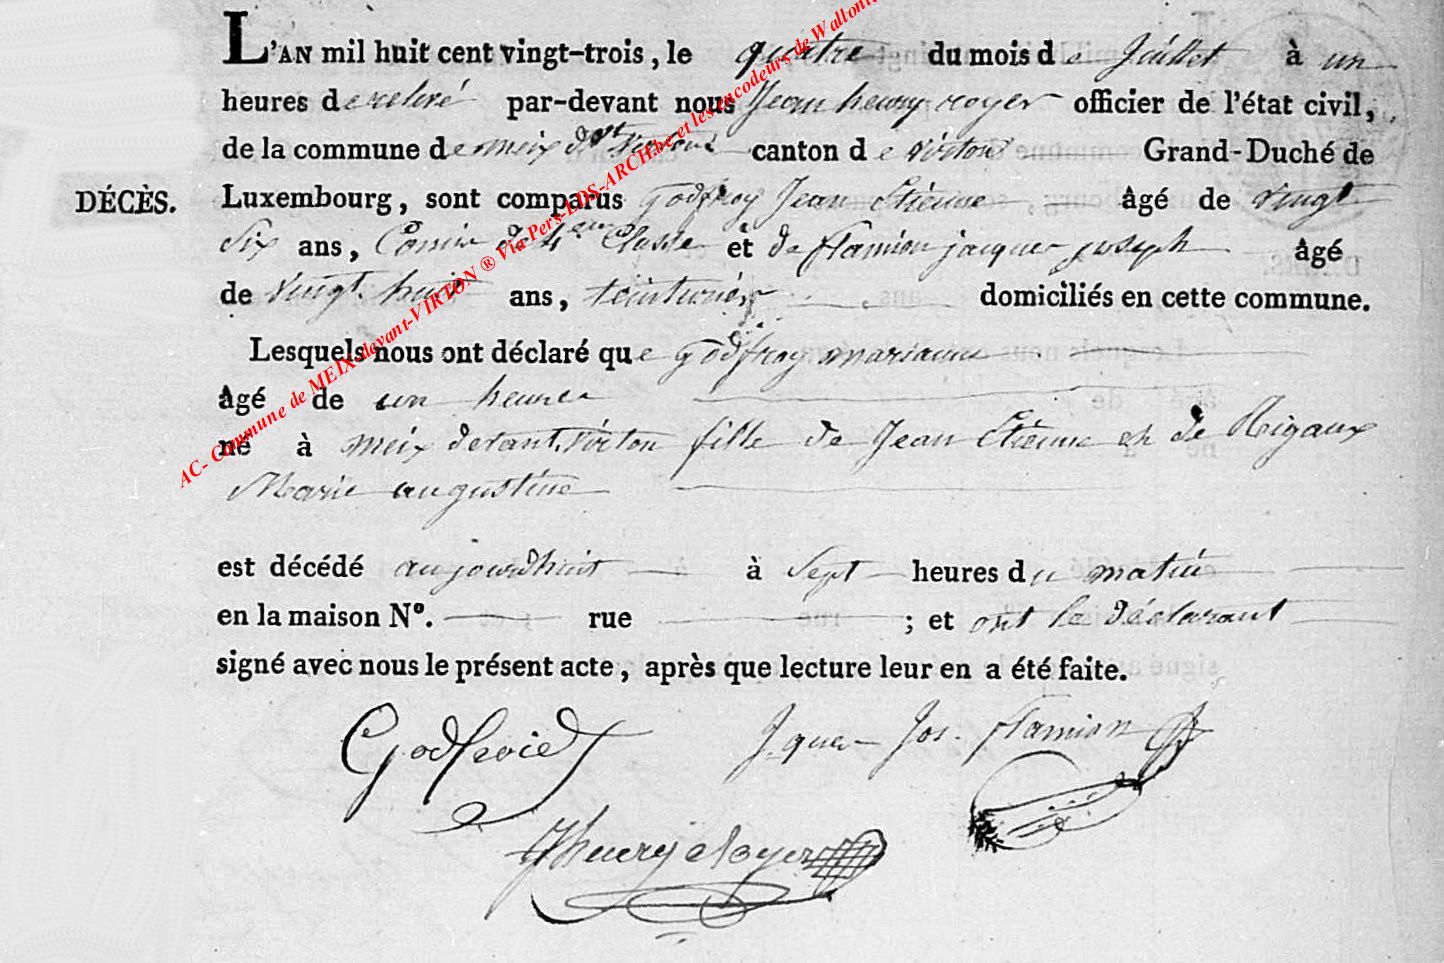 L'AN mil huit cent vingt-trois, le quatre du mois de Juillet à un
heures de relevé par-devant nous Jean henry royer officier de l'état civil,
de la commune de meix dvt virton canton de virton Grand-Duché de
DÉCÈS. Luxembourg, sont comparus godfroy Jean Etienne âgé de vingt
Six ans, Comis de 4eme Classe et de flamion jacques joseph âgé
de vingt huit ans, teinturier domiciliés en cette commune.
Lesquels nous ont déclaré que godfroy marianne
âgé de un heures
né à meix devant virton fille de Jean Etienne et de Rigaux
Marie augustine
est décédé aujourdhuit à Sept heures du matin
en la maison No. rue ; et ont le déclarant
signé avec nous le présent acte, après que lecture leur en a été faite.
J. ques Jos. flamion
Jhenry Royer
AC- Commune de MEIX-devant-VIRTON ® Via Pers-LDS-ARCH.be et les encodeurs de Wallonie